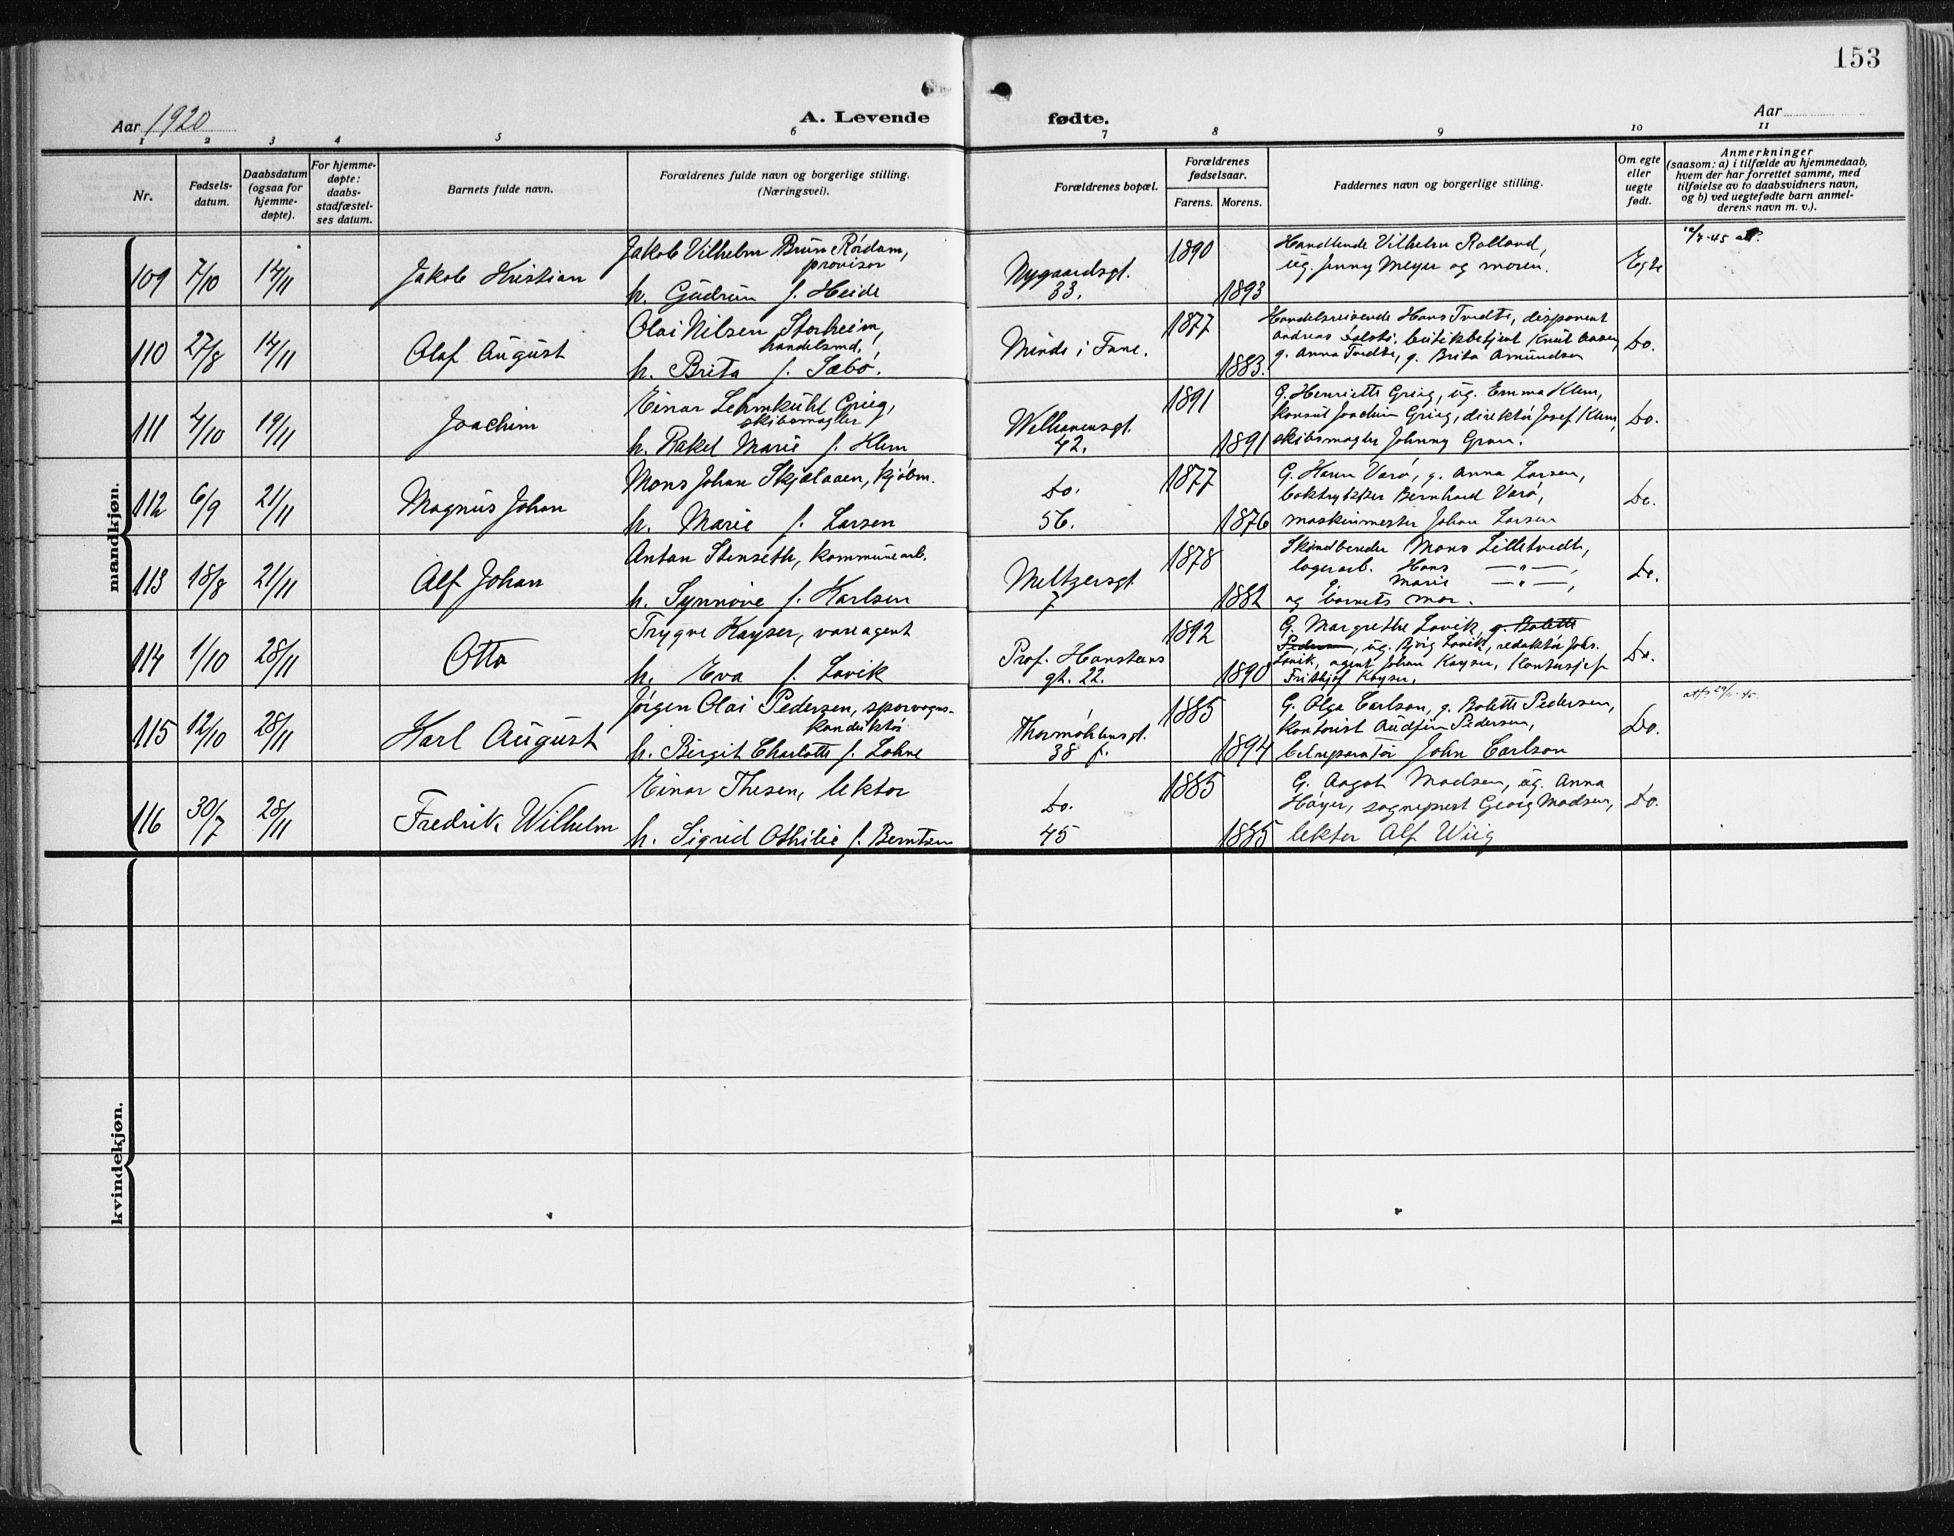 153
Aar 1920
A. Levende
fødte.
Aar
1 2 3 4 5 6 7 8 9 10 11
Nr.
Fødsels-
datum.
Daabsdatum
(ogsaa for
hjemme-
døpte).
For hjemme-
døpte:
daabs-
stadfæstel-
ses datum.
Barnets fulde navn.
Forældrenes fulde navn og borgerlige stilling.
(Næringsveil).
Forældrenes bopæl.
Forældrenes
fødselsaar.
Farens. Morens.
Faddernes navn og borgerlige stilling.
Om egte
eller
uegte
født.
Anmerkninger
(saasom: a) i tilfælde av hjemmedaab,
hvem der har forrettet samme, med
tilføielse av to daabsvidners navn,
og b) ved uegtefødte barn anmel-
derens navn m. v.).
mandkjøn.
109 7/10 14/11 Jakob Kristian
Jakob Vilhelm Brun Rördam,
provisor
h. Gudrun f. Heide
Nygaardsgt.
33.
1890
1893
Handlende Vilhelm Rolland,
ug. Jenny Meyer og moren.
Egte
110 27/8 14/11 Olaf August
Olai Nilsen Storheim,
handelsmd.
h. Brita f. Sæbö.
Minde i Fane.
1877
1883.
Handelsreisende Hans Tvedte, disponent
Andreas, butikbetjent Knut Aasen,
g. Anna Tvedte, g. Brita Amundsen
Do.
111 4/10 19/11 Joachim
Einar Lehmkuhl Grieg,
skibsmægler
h. Rakel Marie f. Klem
Welhavensgt.
42.
1891
1891
G. Henriette Grieg, ug. Emma Klem,
konsul Joachim Grieg, direktör Josef Klem,
skibsmægler Johnny Gran.
Do.
112 6/9 21/11 Magnus Johan
Mons Johan Skjælaaen, kjöbm.
h. Marie f. Larsen
Do.
56.
1877
1876
G. Hanna Varö, g. Anna Larsen,
boktrykker Bernhard Varö,
maskinmester Johan Larsen
Do.
113 18/8 21/11 Alf Johan
Anton Stenseth, kommunearb.
h. Synnöve f. Karlsen
Meltzersgt.
7
1878
1882
Skindbereder Mons Lilletvedt,
lagerarb. Hans — " —,
g. Marie — " —,
og barnets mor.
Do.
114 1/10 28/11 Otto
Trygve Kayser, vareagent
h. Eva f. Lavik
Prof. Hansteens
gt. 22.
1892
1890
G. Margrethe Lavik, g. Bolette
Pedersen, ug. Björg Lavik, redaktör Johs.
Lavik, agent Johan Kayser, kontorsjef
Fritjof Kayser,
Do.
115 12/10 28/11 Karl August
Jörgen Olai Pedersen, sporvogns-
konduktör
h. Birgit Charlotte f. Lohne
Thormöhlensgt.
38 f.
1885
1894
G. Olga Carlson, g. Bolette Pedersen,
kontorist Audfin Pedersen,
John Carlson
Do.
116 30/7 28/11 Fredrik Wilhelm
Einar Thesen, lektor
h. Sigrid Othilie f. Berntsen
Do.
45
1885
1885
G. Aagot Madsen, ug. Anna
Höyer, sogneprest Georg Madsen,
lektor Alf Wiig
Do.
kvindekjøn.